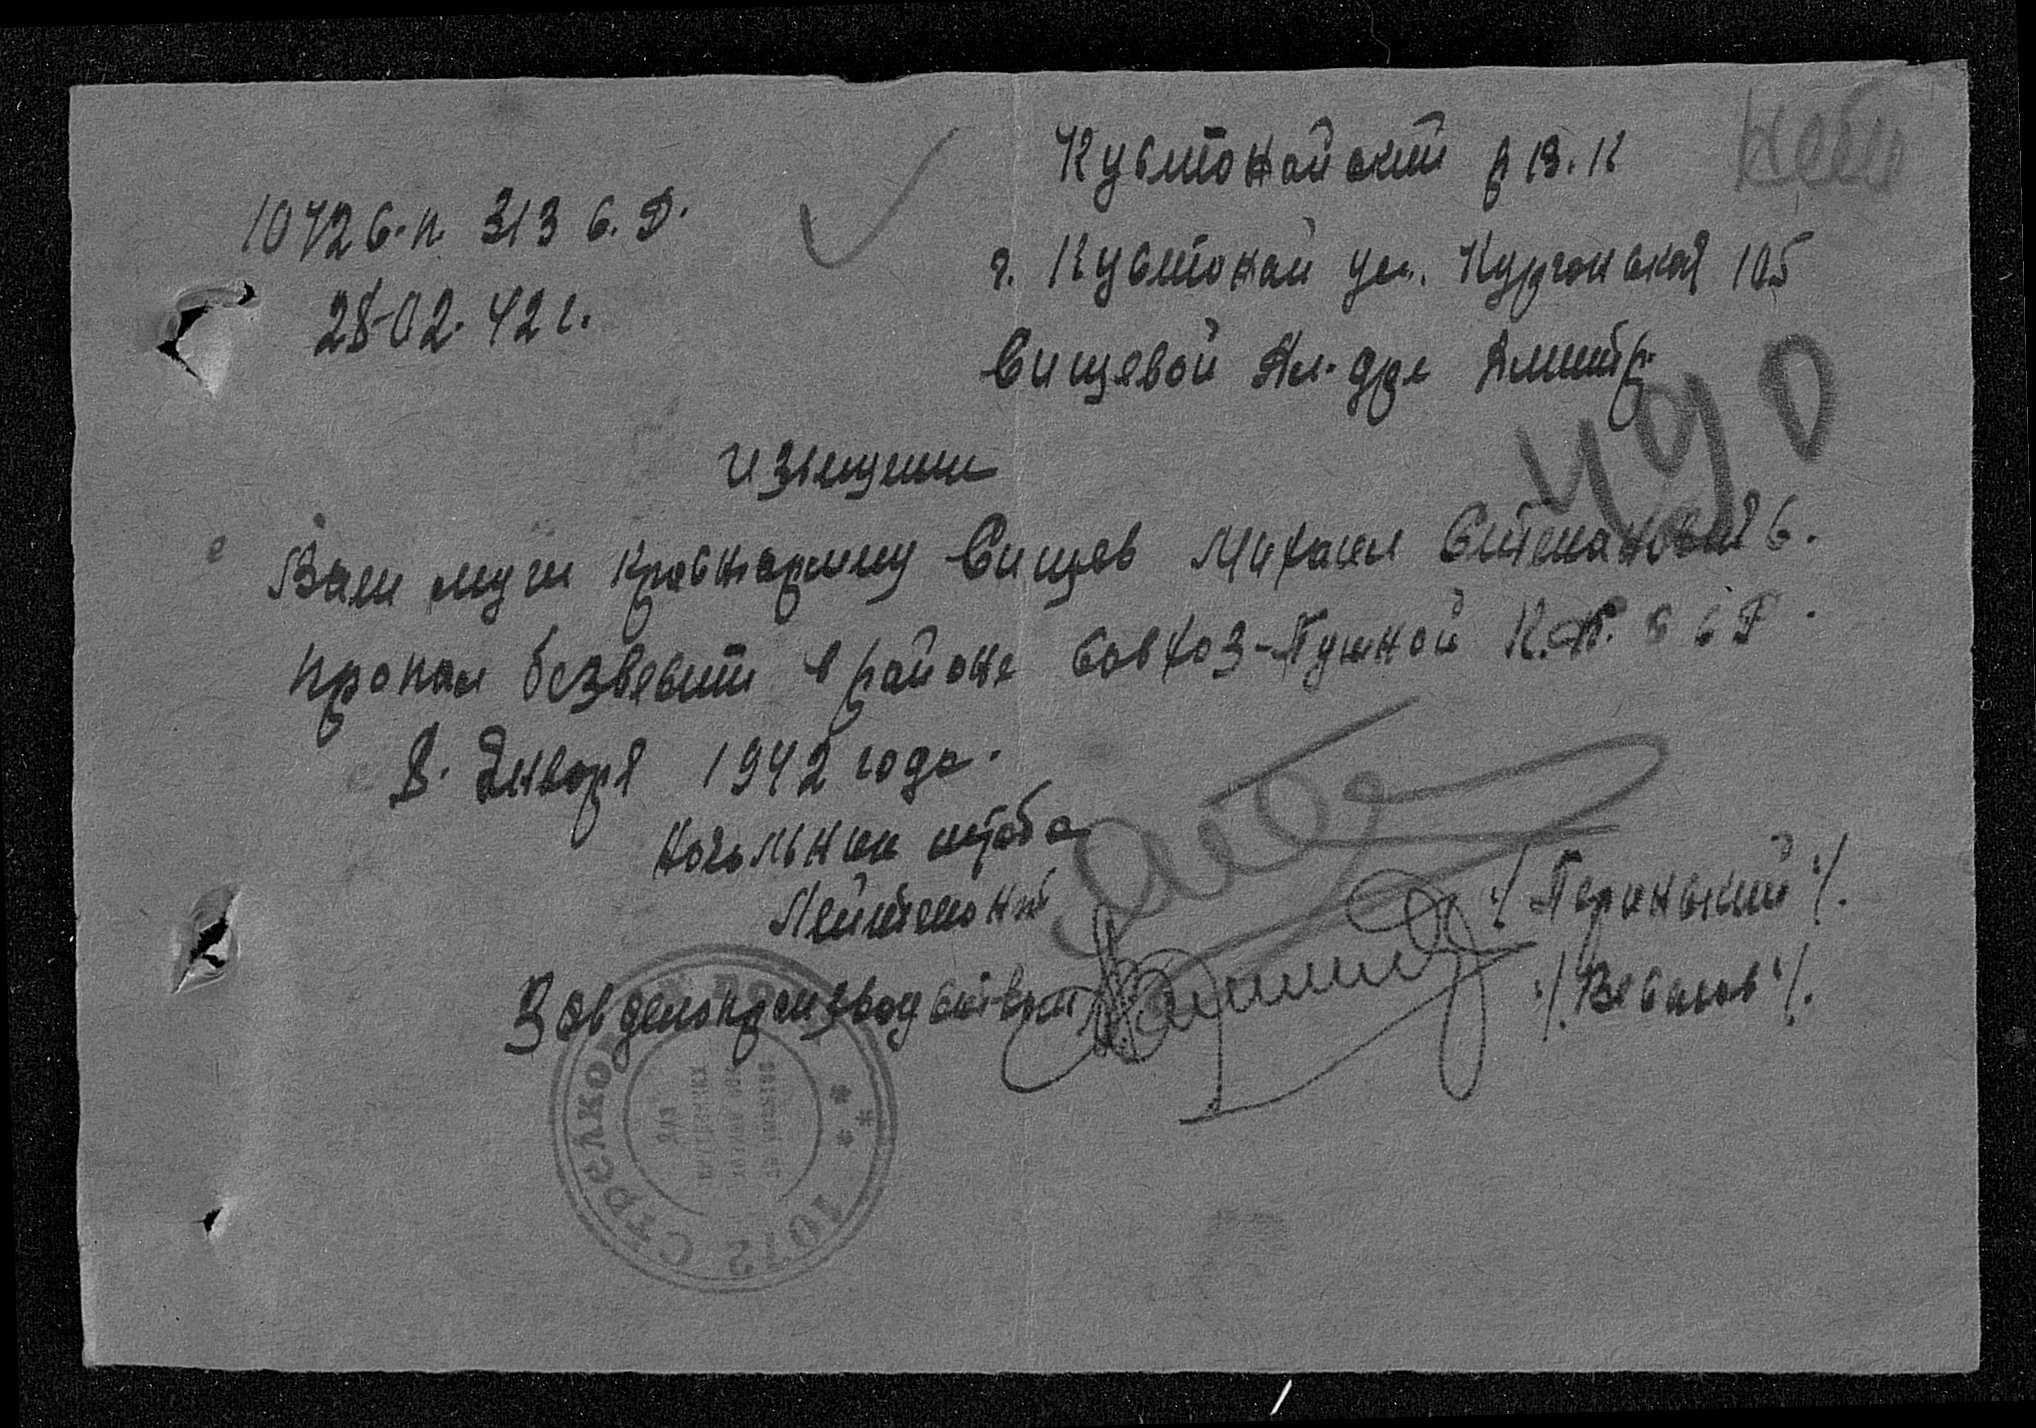 1072 с.п. 313 с.д.
28-02-42 г.
Кустонайский Р В.К
г. Кустонай ул. Кургонская 105
Сищевой Ал-дре Дмитр.
490
Извещение
Ваш муж красноармиец Сищев Михаил Степанович
пропал безвести в районе Совхоз-Пушной К.Ф.ССР.
8. Января 1942 года.
Ночальник штаба
Лейтенант
/Перинский/.
Завделопроизводством
/Весалов/.
1072 СТРЕЛКОВЫЙ ПОЛК